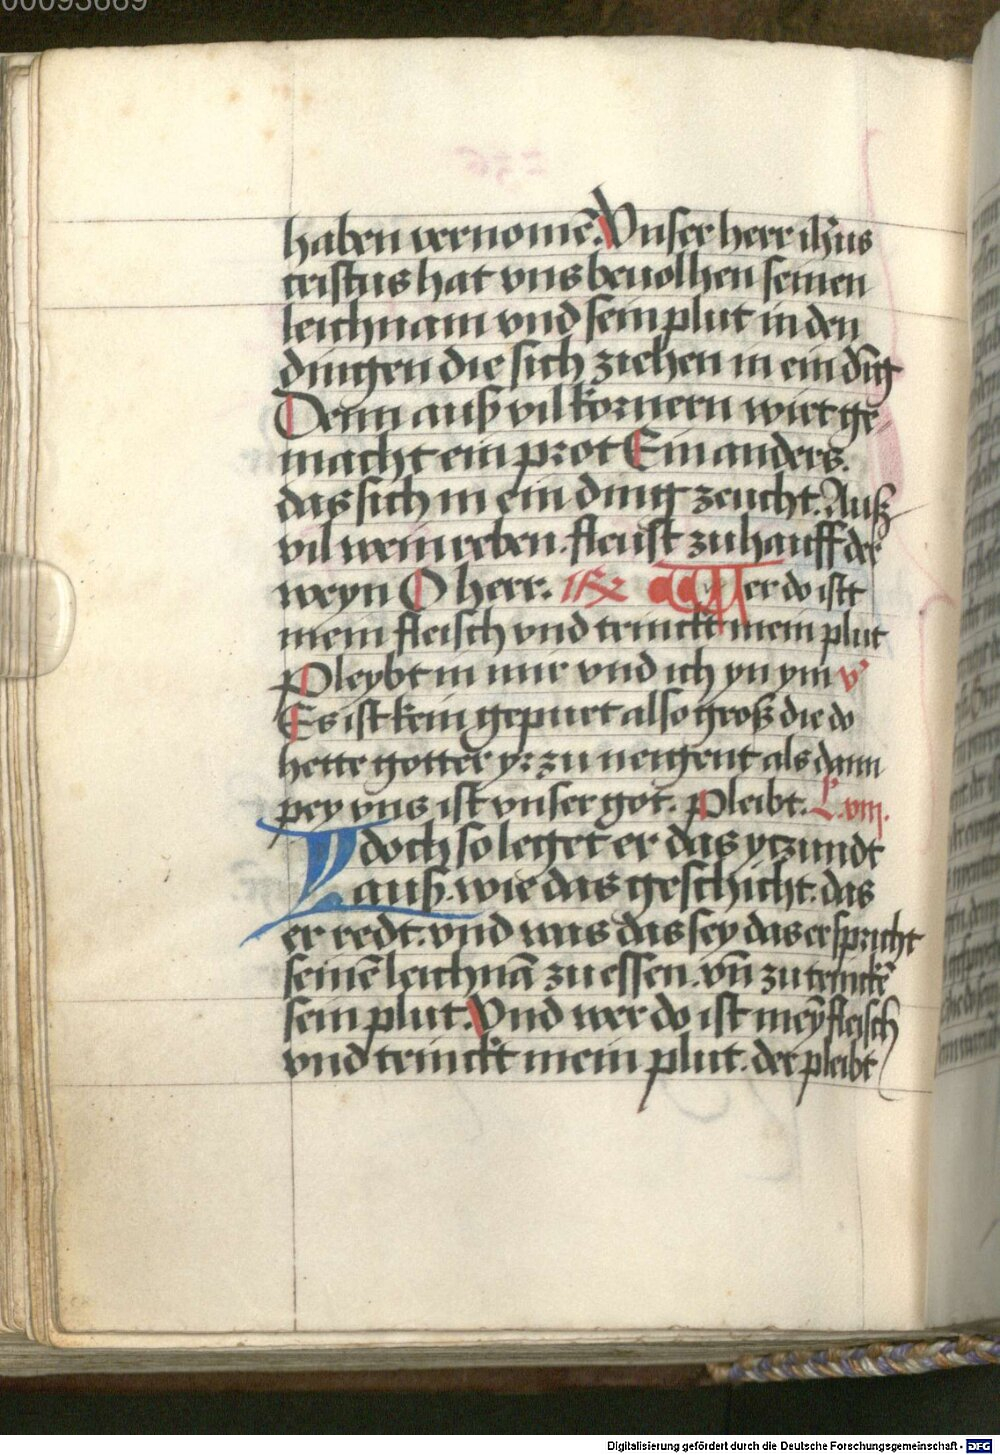 00093669
haben vernomē. Vnser herr ih̄us
cristus hat vns beuolhen seinen
leichnam vnd sein plut in den
dingen die sich ziehen in ein dīg
Denn auß vil kornern wirt ge-
macht ein prot Ein anders.
das sich in ein ding zeucht. Auß
vil weinreben. fleust zuhauff der
weyn O herr. Wer do istt
mein fleisch vnd trinckt mein plut
Pleybt in mir vnd ich yn ym v̕
Es ist kein gepurt also groß die do
hette gotter yr zu neigent als dann
pey vns ist vnser got. Pleibt. L. viii.
Idoch so leget er das yczundt
auß. wie das geschicht. das
er redt. vnd was das sey das er spricht
seinē leichnā zu essen. vn̄ zu trinckē
sein plut. Vnd wer do ist mey̅ fleisch
vnd trinckt mein plut. der pleibt
Digitalisierung gefördert durch die Deutsche Forschungsgemeinschaft - DFG